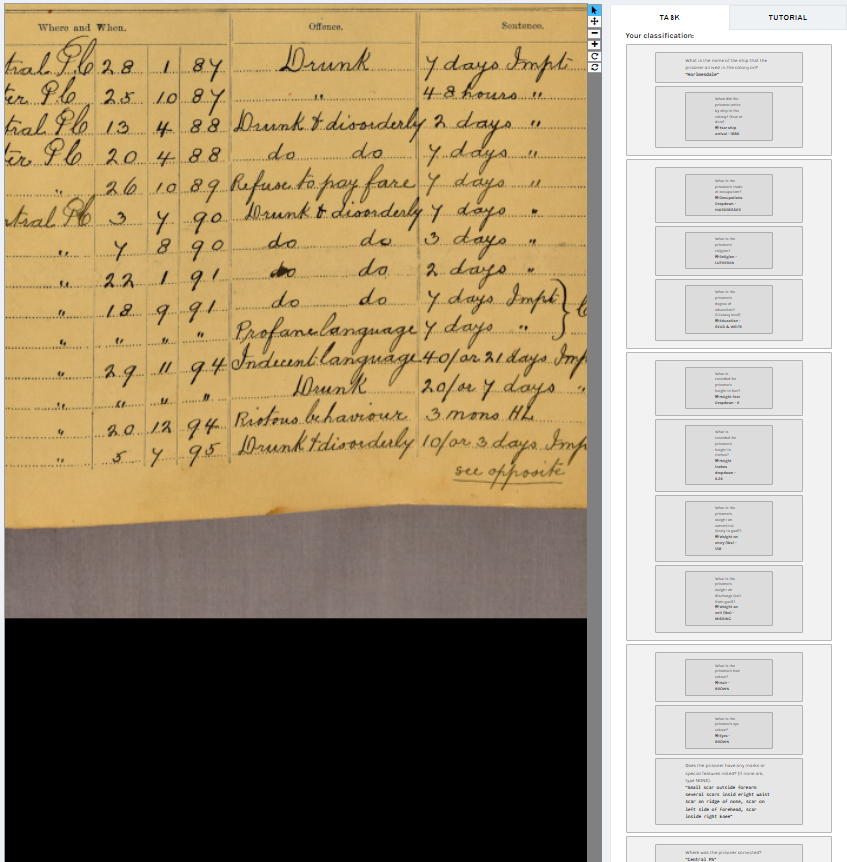 Where and When. Offence. Sentence.
tral P.C 28 1 87 Drunk 7 days Impt
ter P.C 25 10 87 " 48 hours "
tral P.C 13 4 88 Drunk & disorderly 2 days "
ter P.C 20 4 88 do do 7 days "
" 26 10 89 Refuse to pay fare 7 days "
ntral P.C 3 7 90 Drunk & disorderly 7 days "
" 7 8 90 do do 3 days "
" 22 1 91 do do 2 days "
" 18 9 91 do do 7 days Impt }
" " " " Profane language 7 days "
" 29 11 94 Indecent language 40/or 21 days Imp
" " " " Drunk 20/or 7 days "
" 20 12 94 Riotous behaviour 3 mons HL
" 5 7 95 Drunk & disorderly 10/or 3 days Imp
see opposite
TASK
TUTORIAL
Your classification:
What is the name of the ship that the
prisoner arrived in the colony on?
What did the
prisoner arrive
by ship in the
What is the
prisoner's trade
or occupation?
Occupations
Dropdown -
What is the
prisoner's
religion?
Religion -
LUTHERAN
What is the
prisoner's
degree of
education?
Education -
READ & WRITE
What is
recorded for
prisoner's
height in feet?
Height feet
Dropdown - 5
What is
recorded for
prisoner's
height in
inches?
Height
inches
dropdown -
What is the
prisoner's
weight on
Weight on
entry (lbs) -
What is the
prisoner's
weight on
discharge (exit
from gaol)?
Weight on
exit (lbs) -
MISSING
What is the
prisoner's hair
colour?
Hair -
BROWN
What is the
prisoner's eye
colour?
Eyes -
BROWN
Does the prisoner have any marks or
special features noted? (If none are,
type NONE)
"Small scar outside forearm
several scars insid eright waist
scar on ridge of nose, scar on
left side of forehead, scar
inside right knee"
Where was the prisoner convicted?
"Central PC"